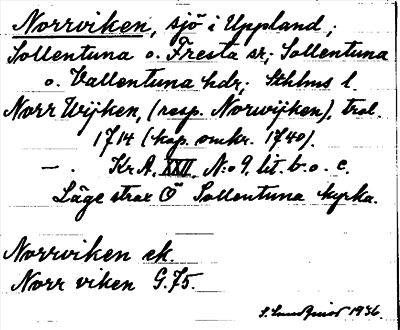 Norrviken, sjö i Uppland;
Sollentuna o. Fresta sr; Sollentuna
o. Vallentuna hdr; Sthlms l.
Norr Wijken, (resp. Norwijken), trol.
1714 (kop. omkr. 1740).
— . Kr.A. XXVI. N:o 9. lit. b. o. c.
Läge strax Ö Sollentuna kyrka.
Norrviken ek.
Norr viken G.75.
1936.